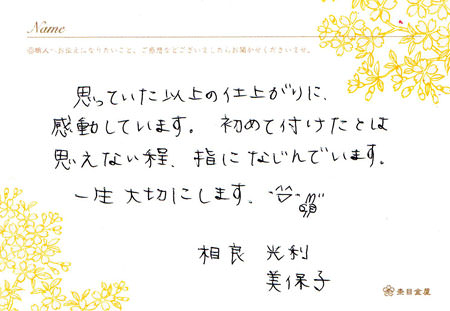 Name
◎職人へお伝えになりたいこと、ご感想などございましたらお聞かせくださいませ。
思っていた以上の仕上がりに、
感動しています。初めて付けたとは
思えない程、指になじんでいます。
一生大切にします。
相良 光利
美保子
杢目金屋